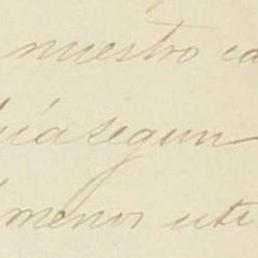 nuestro ca
ia segun
menos uti